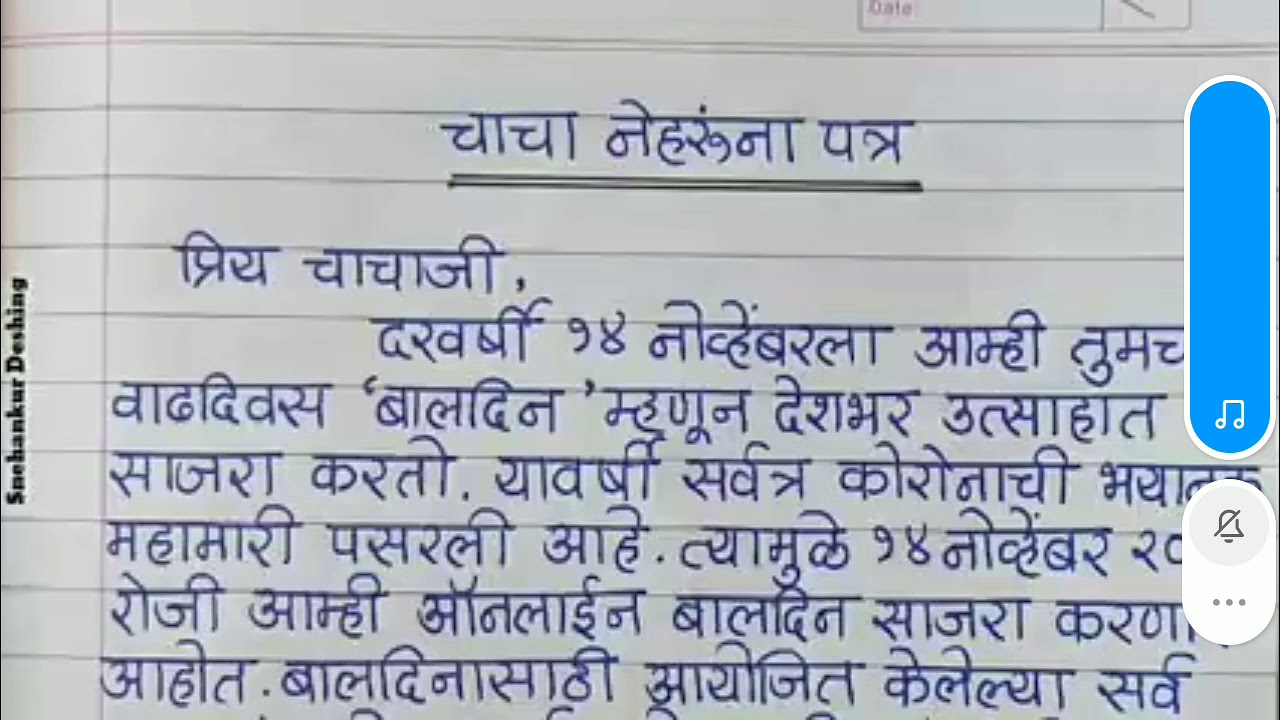 Date
चाचा नेहरूंना पत्र
प्रिय चाचाजी,
दरवर्षी १४ नोव्हेंबरला आम्ही
वाढदिवस ‘बालदिन’ म्हणून देशभर उत्साहात
साजरा करतो. यावर्षी सर्वत्र कोरोनाची
महामारी पसरली आहे. त्यामुळे १४ नोव्हेंबर
रोजी आम्ही ऑनलाईन बालदिन साजरा
आहोत. बालदिनासाठी आयोजित केलेल्या सर्व
Snehankur Deshing